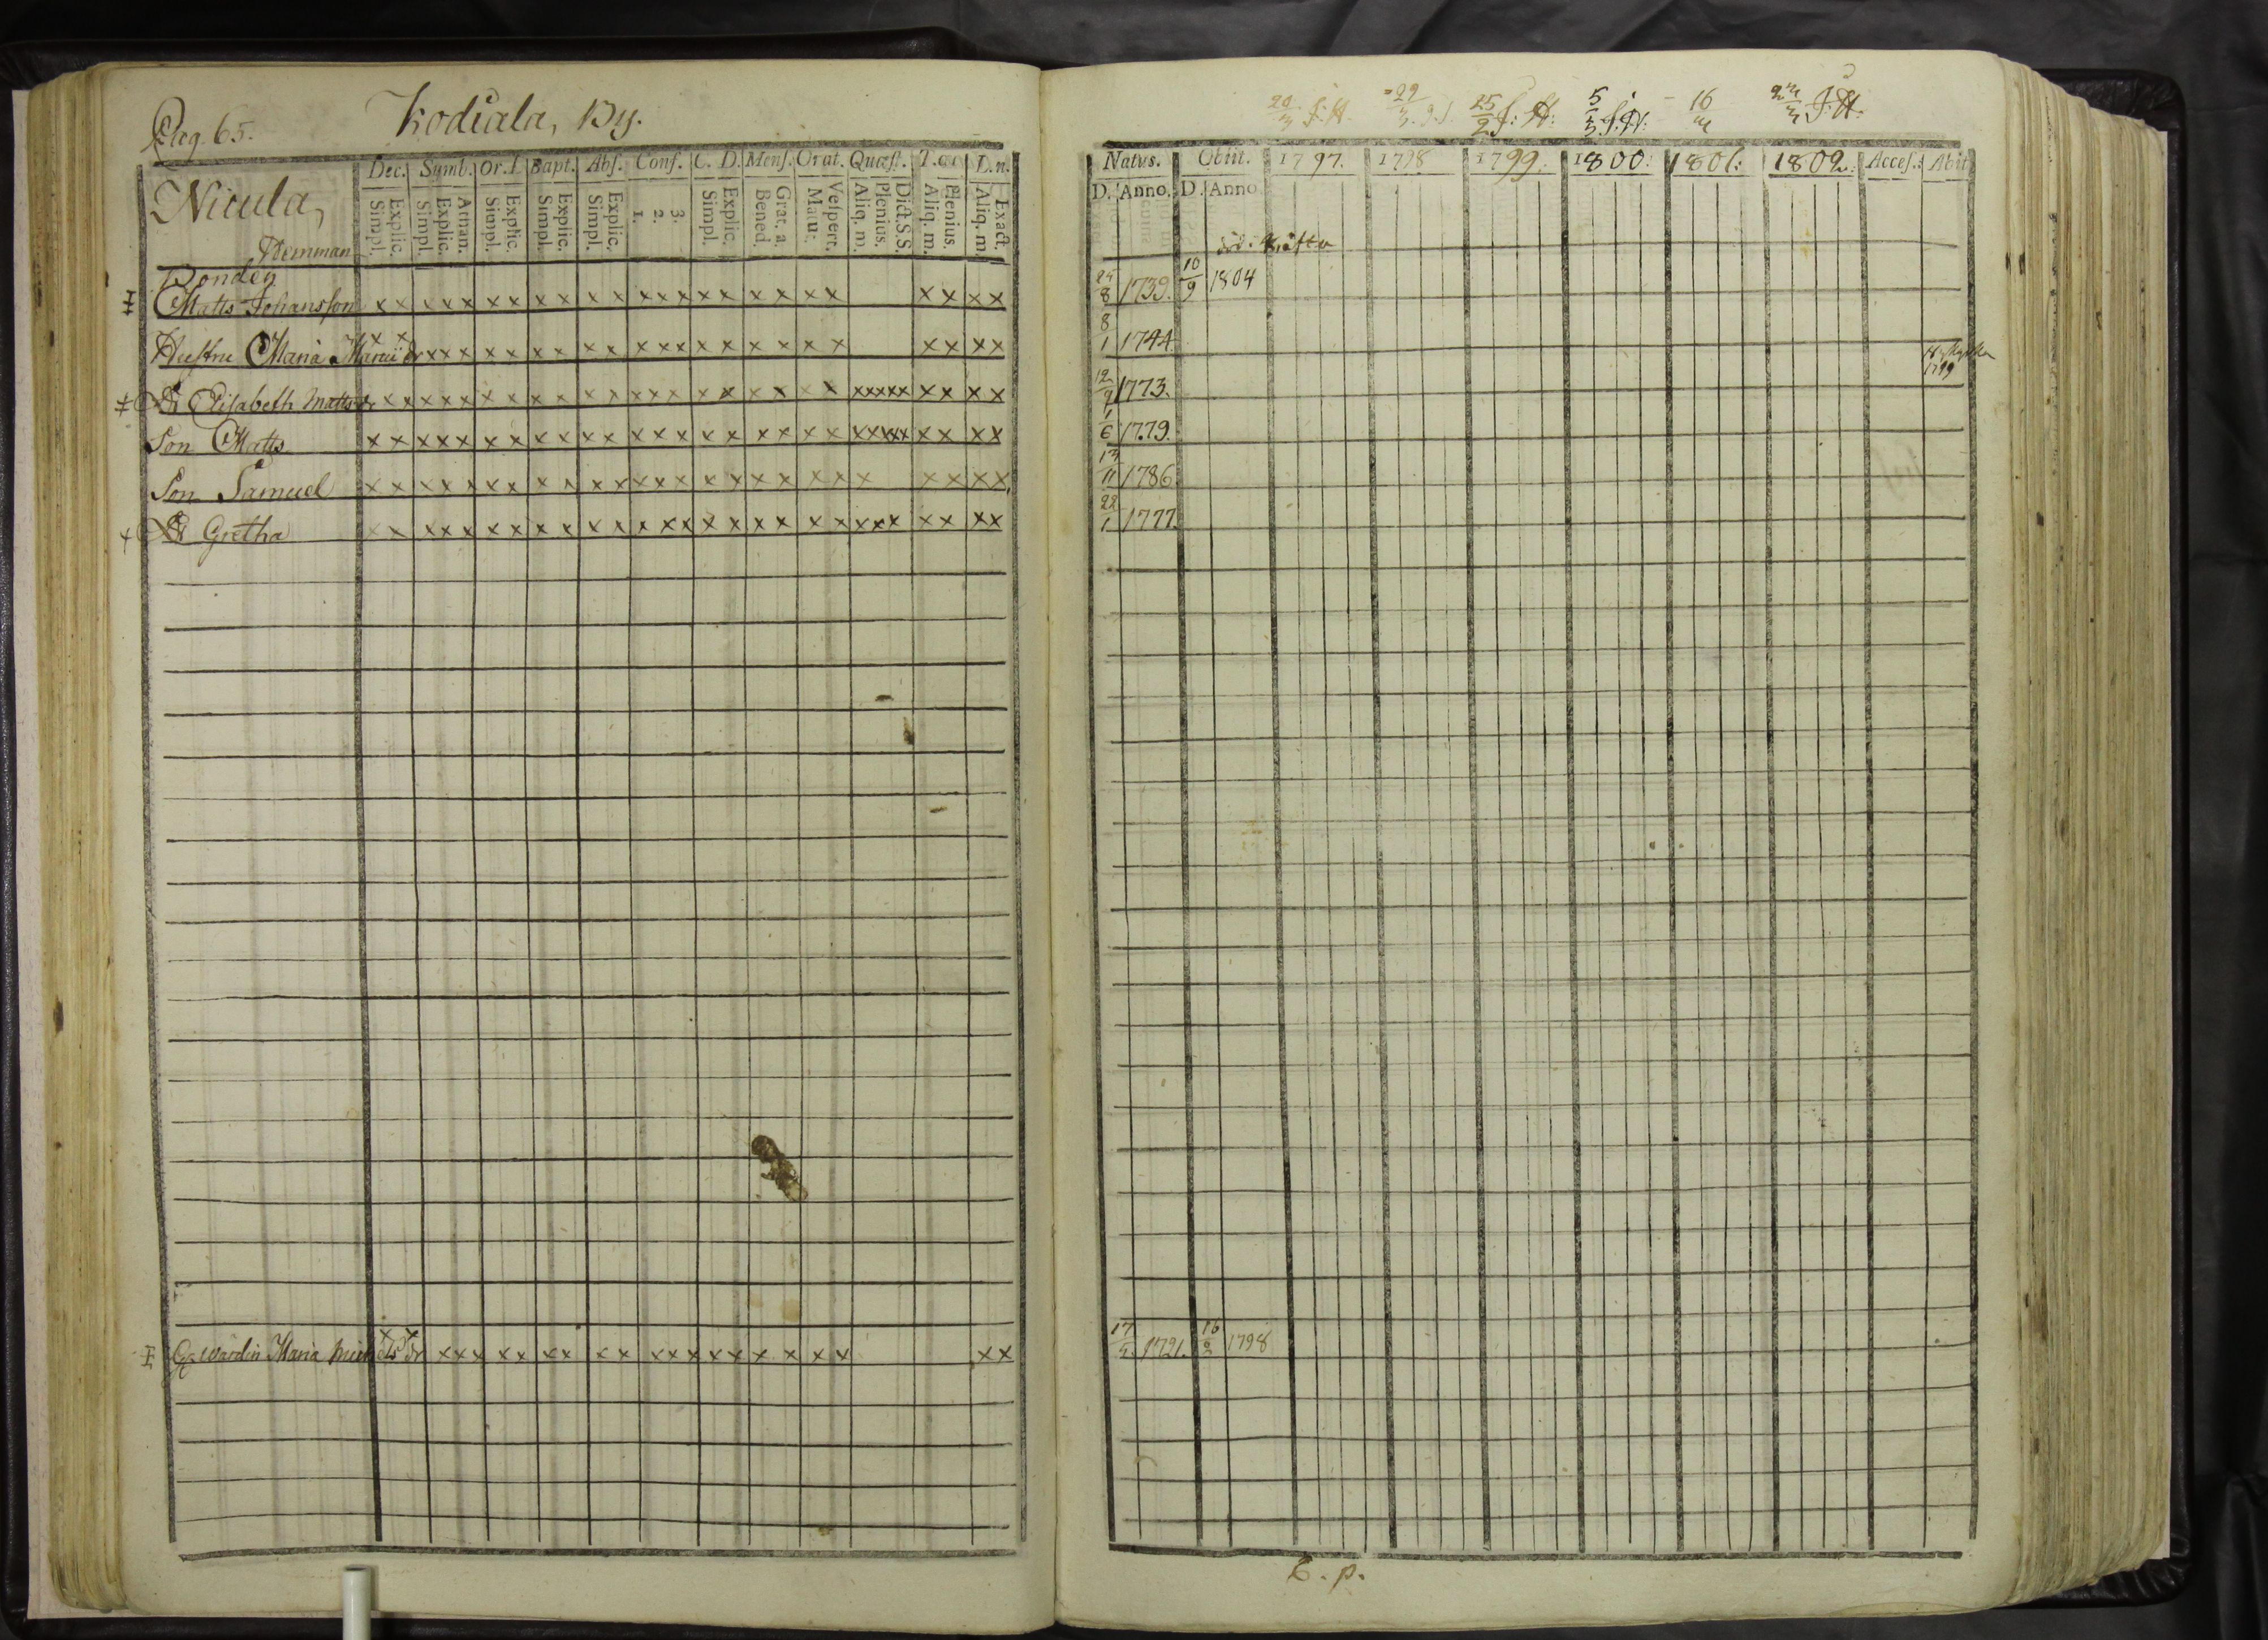 Pag. 65. Kodiala, By.
Dec. Symb. Or. D. Bapt. Abs. Conf. C. D. Mens. Orat. Quæst. T. œc. D. n.
Nicula, Hemman
Explic. Simpl. Athan. Explic. Simpl. Explic. Simpl. Explic. Simpl. Explic. Simpl. 3. 2. 1. Explic. Simpl. Grat. a. Bened. Vesper. Matut. Dict. S. S. Plenius. Aliq. m. Plenius. Aliq. m. Exact. Aliq. m.
Bonden
Matts Johansson x x x x x x x x x x x x x x x x x x x x x x x
Hustru Maria dr x x x x x x x x x x x x x x x x x x x x x x x
Dr Elisabeth Matts dr x x x x x x x x x x x x x x x x x x x xxxxx x x x x
Son Matts x x x x x x x x x x x x x x x x x x x xxxxx x x x x
Son Samuel x x x x x x x x x x x x x x x x x x x x x x x x
Dr Gretha x x x x x x x x x x x x x x x x x x x x x x x x x x
Maria x x x x x x x x x x x x x x x x x x x x x
20/3 J. H. 29/3 25/2 J: H: 5/3 J. H: 16 J. H.
Natus. Obiit. 1797. 1798 1799. 1800: 1801: 1802. Acces. Abiit
D. Anno. D. Anno
24/8 1739. 10/9 1804
8/1 1744.
1799
12/9 1773.
1/6 1779.
13/11 1786
22/1 1777.
17 1721. 16 1798